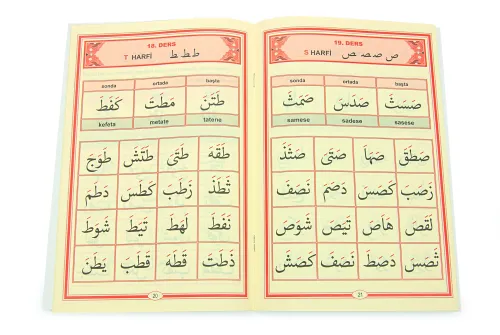 18. DERS
T HARFİ ط ط ط
sonda ortada başta
طَتَنَ مَطَتَ كَفَطَ
kefeta metate tatene
طَقَهَ طَتَىَ طَتَشَ طَوَجَ
ثَطَذَ زَطَبَ كَطَسَ دَطَمَ
نَفَطَ لَهَطَ تَيَطَ شَوَطَ
ذَطَتَ قَطَهَ قَطَبَ يَطَنَ
20
19. DERS
S HARFİ ص ص ص
sonda ortada başta
صَسَثَ صَدَسَ صَمَثَ
samese sadese sasese
صَطَقَ صَهَاَ صَتَىَ صَثَذَ
زَصَبَ كَصَسَ دَصَمَ نَصَفَ
لَقَصَ هَاَصَ تَيَصَ شَوَصَ
ثَصَسَ دَصَطَ نَصَفَ كَصَشَ
21